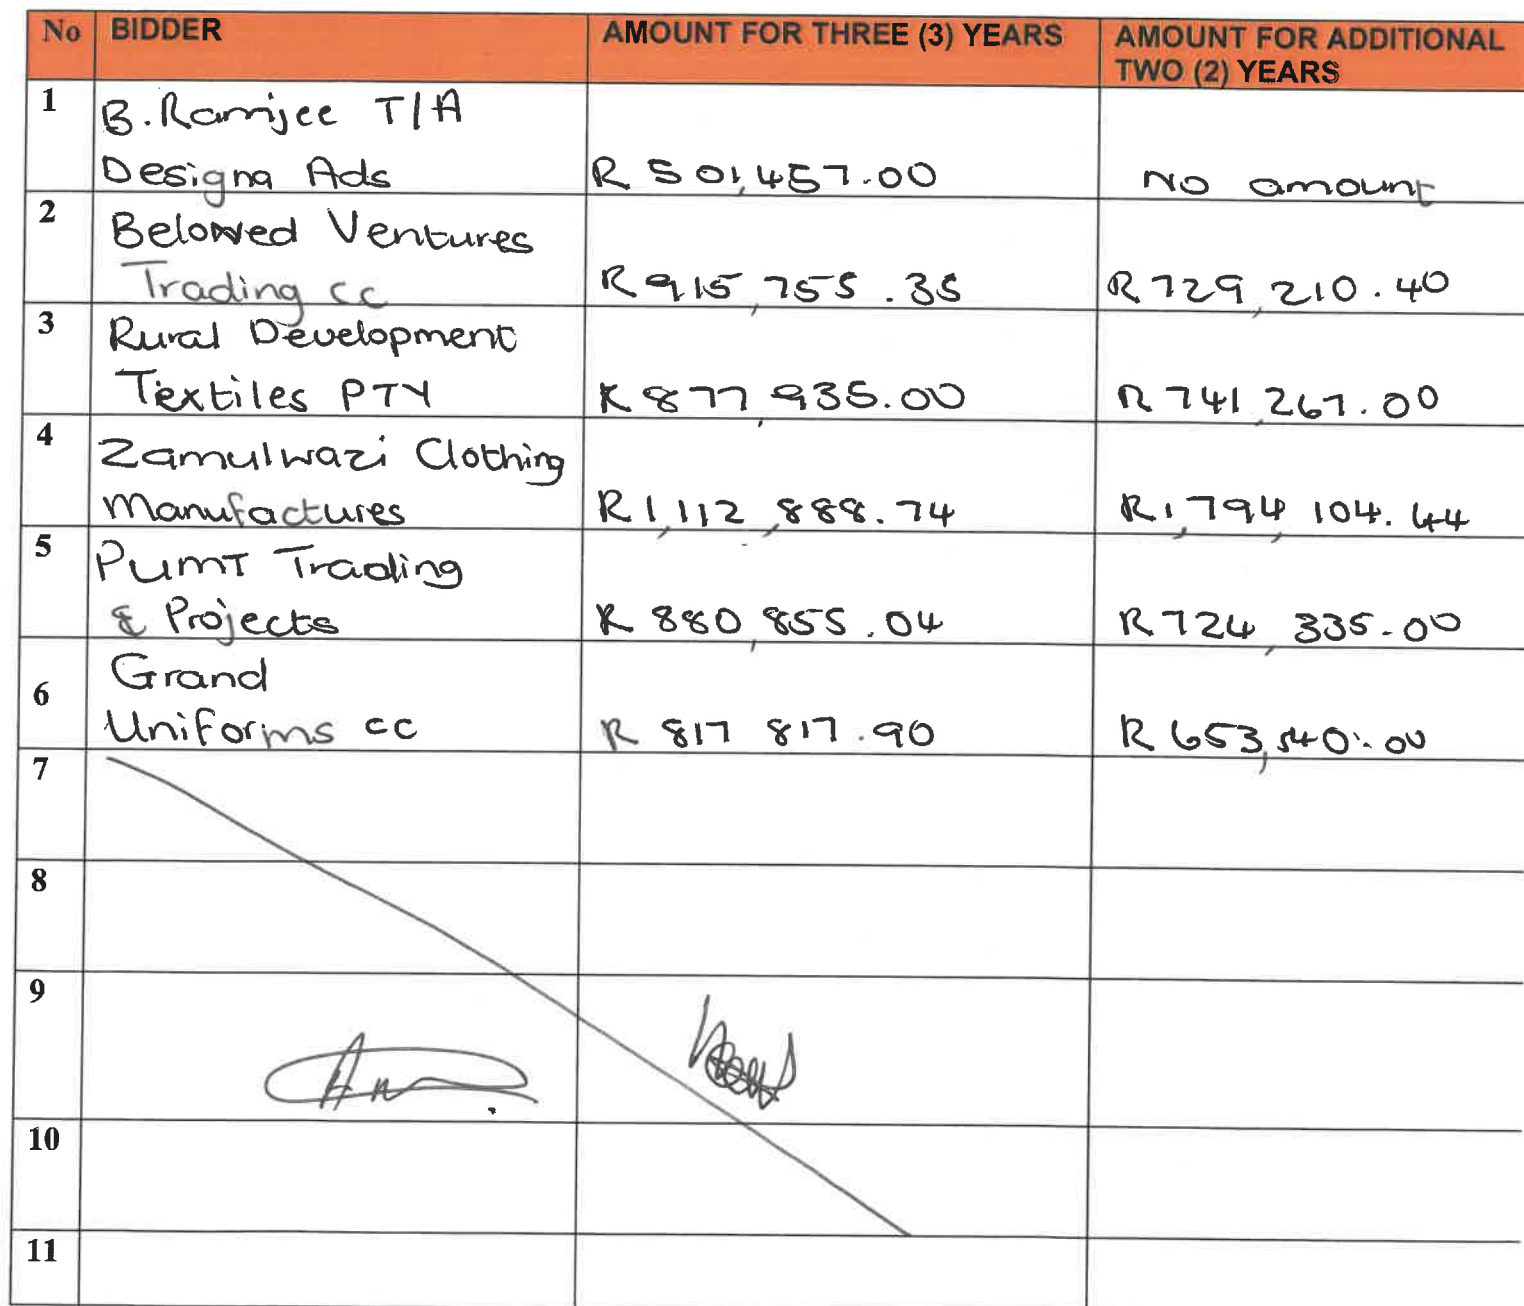 No BIDDER AMOUNT FOR THREE (3) YEARS AMOUNT FOR ADDITIONAL
TWO (2) YEARS
1 B.Ramjee T/A
Designa Ads R 501,457.00 No amount
2 Beloved Ventures
Trading cc R 915,755.35 R 729,210.40
3 Rural Development
Textiles PTY R 877,935.00 R 741,267.00
4 Zamulwazi Clothing
Manufactures R1,112,888.74 R1,794,104.44
5 PUMT Trading
& Projects R 880,855.04 R 724,335.00
Grand
6
Uniforms cc R 817 817.90 R 653,540.00
7
8
9
10
11